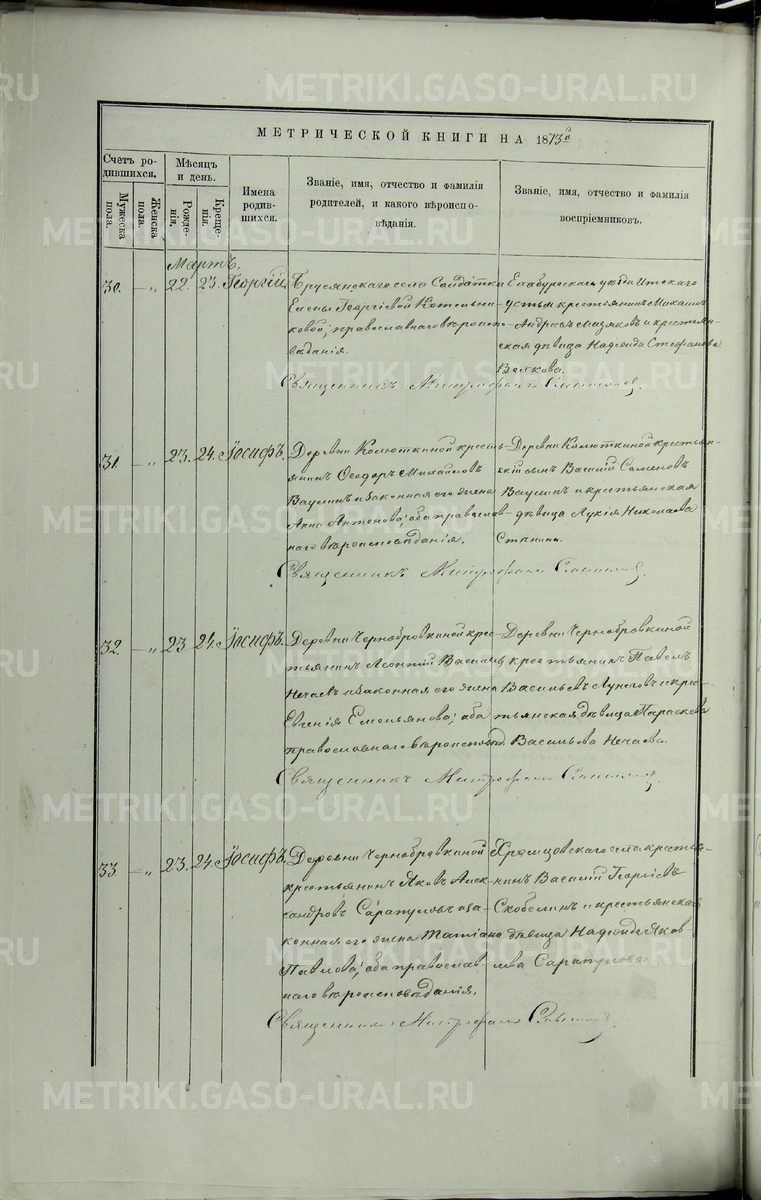 METRIKI.GASO-URAL.RU
МЕТРИЧЕСКОЙ КНИГИ НА 1873й
Счетъ ро-
дившихся.
Мужеска
пола.
Женска
пола.
Мѣсяцъ
и день.
Рожде-
нія.
Креще-
нія.
Имена
родив-
шихся.
Званіе, имя, отчество и фамилія
родителей, и какого вѣроиспо-
вѣданія.
Званіе, имя, отчество и фамилія
воспріемниковъ.
Мартъ.
30. — „ 22. 23. Георгій,
Бруснянскаго села Солдатки
Елены Георгіевой Котельни-
ковой; православнаго вѣроиспо-
вѣданія.
Елабужскаго уѣзда
крестьянинъ Михаилъ
Андреевъ и крестьян-
ская дѣвица Надежда Стефанова
Волкова.
Священникъ Митрофанъ
31. — „ 23. 24. Іосифъ.
Деревни Колюткиной кресть-
янинъ Ѳеодоръ Михайловъ
Ваулинъ и законная его жена
Анна Антонова; оба православ-
наго вѣроисповѣданія.
Деревни Колюткиной крестьян-
скій сынъ Василій Семеновъ
Ваулинъ и крестьянская
дѣвица Лукія Николаева
Священникъ Митрофанъ
32. — „ 23. 24. Іосифъ.
Деревни Чернобровкиной крес-
тьянинъ Леонтій Васильевъ
Нечаевъ и законная его жена
Евгенія Емельянова; оба
православнаго вѣроисповѣд.
Деревни Чернобровкиной
крестьянинъ Павелъ
Васильевъ Луговъ и крес-
тьянская дѣвица Параскова
Васильева Нечаева.
Священникъ Митрофанъ
33 — „ 23. 24. Іосифъ.
Деревни Чернобровкиной
крестьянинъ Яковъ Алек-
сандровъ Сарапуловъ и за-
конная его жена Татіана
Павлова; оба православ-
наго вѣроисповѣданія.
Храмцовскаго села крестья-
нинъ Василій Георгіевъ
Скобелинъ и крестьянская
дѣвица Надежда Яков-
лева Сарапулова
Священникъ Митрофанъ